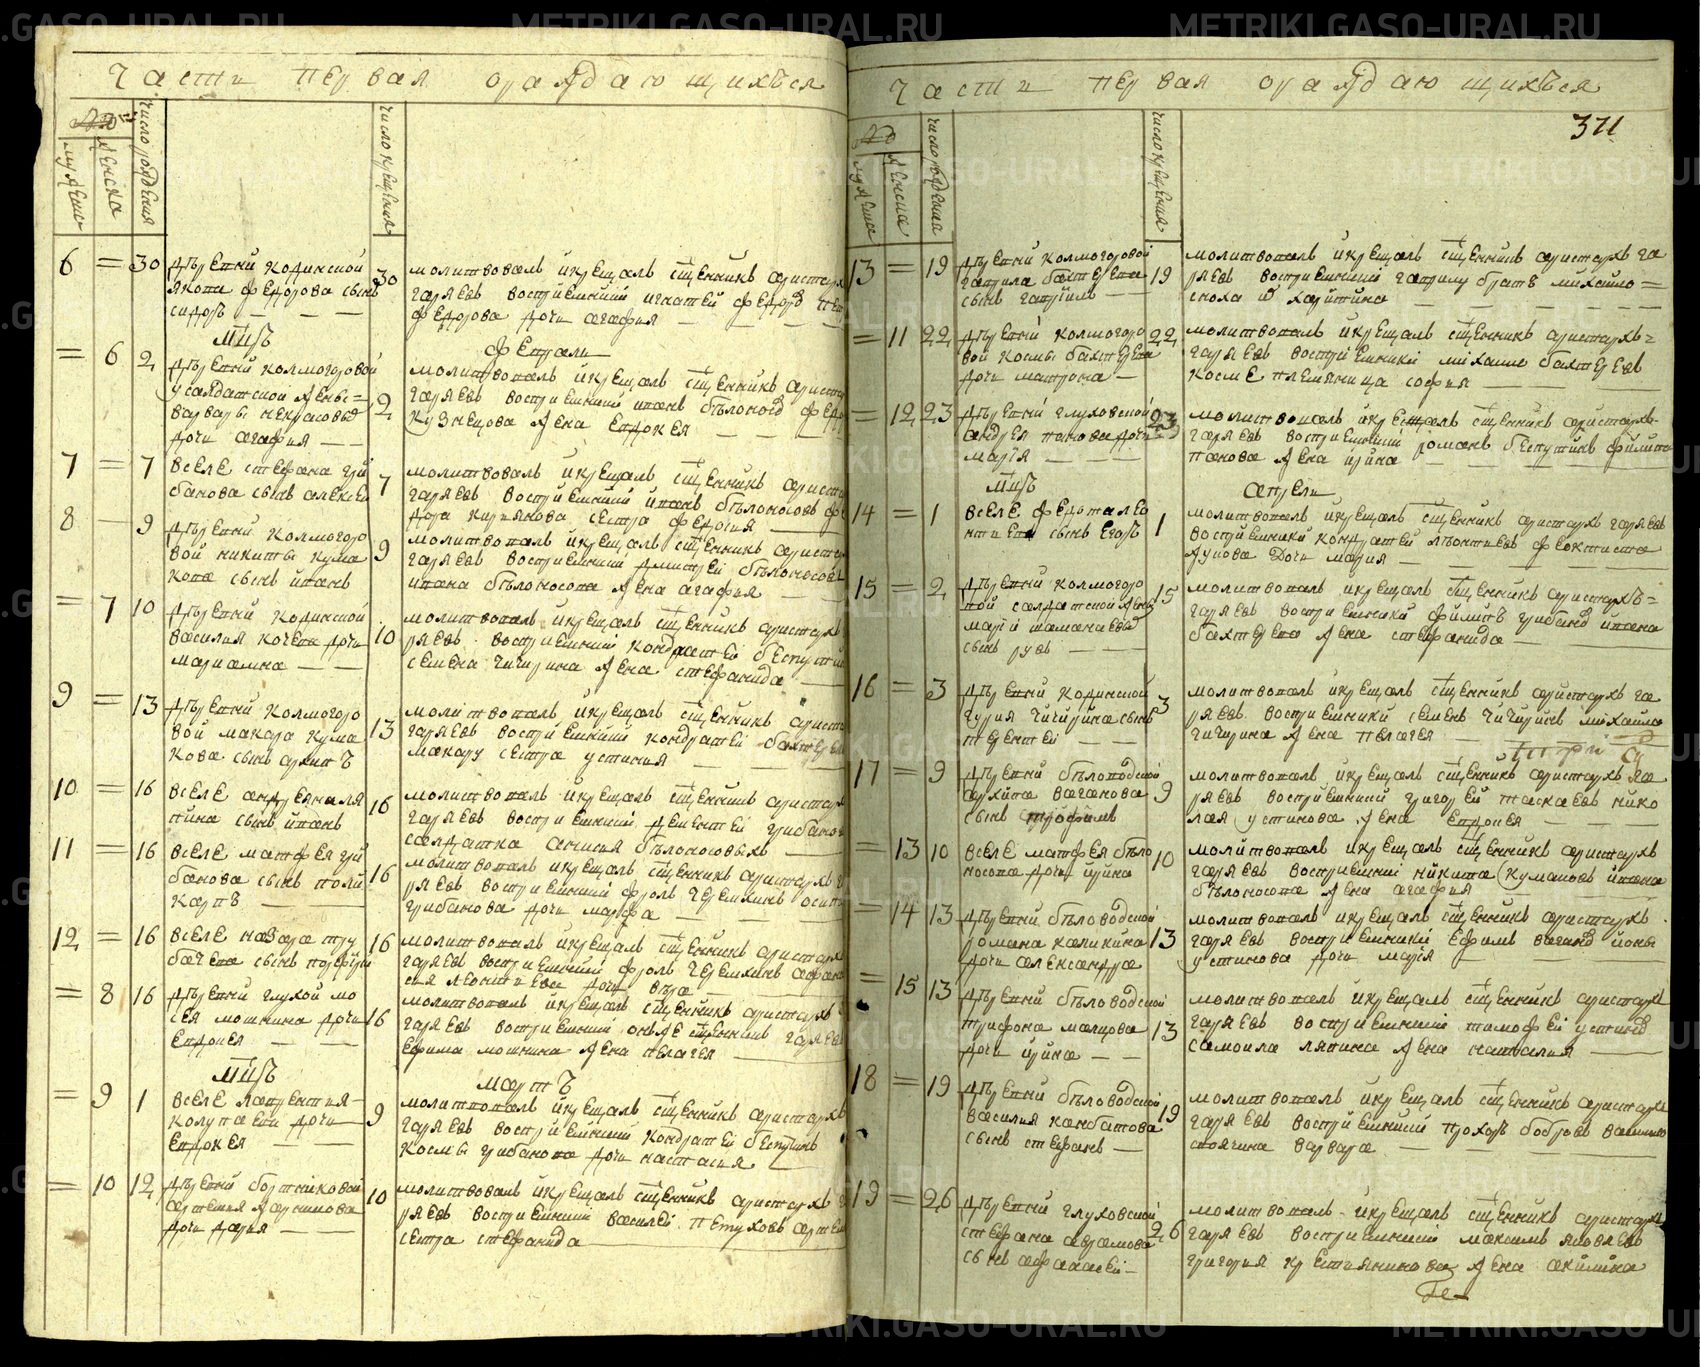 Части первая о раждающихъся
число рождения
число крещения
мужеска
женска
6 = 30 дьревни кодинской
якова федорова сынъ
сидоръ
30 молитвовалъ и крещалъ сщенникъ аристархъ
гаряевъ восприемники игнатей федоръ
федорова дочь агафия
мцъ
феврали
= 6 2 дьревни колмогоровой
у салдатской жены =
варвары некрасовой
дочь агафия
2 молитвовалъ и крещалъ сщенникъ аристархъ
гаряевъ восприемники иванъ белоносовъ
кузнецова жена евдокея
7 = 7 в селе стефана гри
банова сынъ алексей
7 молитвовалъ и крещалъ сщенникъ аристархъ
гаряевъ восприемники иванъ белоносовъ
кирьянова сестра федосия
8 9 дьревни колмогоро
вой никиты кума
кова сынъ иванъ
9 молитвовалъ и крещалъ сщенникъ аристархъ
гаряевъ восприемники дмитрей белоносовъ
ивана белоносова жена агафия
= 7 10 дьревни кодинской
василия кочева дочь
мариамна
10 молитвовалъ и крещалъ сщенникъ аристархъ
ряевъ восприемники кондратей беспутинъ
семена чигирина жена стефанида
9 = 13 дьревни колмогоро
вой макара кума
кова сынъ архипъ
13 молитвовалъ и крещалъ сщенникъ аристархъ
гаряевъ восприемники кондратей бахтеревъ
макару сестра устиния
10 = 16 в селе андреяна ля
пина сынъ иванъ
16 молитвовалъ и крещалъ сщенникъ аристархъ
гаряевъ восприемники дементей грибановъ
салдатка анисия белоносовыхъ
11 = 16 в селе матфея гри
банова сынъ поли
карпъ
16 молитвовалъ и крещалъ сщенникъ аристархъ
ряевъ восприемники фролъ черемхинъ осипа
грибанова дочь марфа
12 = 16 в селе назара тру
бачева сынъ порфирей
16 молитвовалъ и крещалъ сщенникъ аристархъ
гаряевъ восприемники фролъ черемхинъ
сия леонтиева дочь вера
= 8 16 дьревни глухой мо
сея мошкина дочь
евдокея
16 молитвовалъ и крещалъ сщенникъ аристархъ
гаряевъ восприемники онъ же сщенникъ гаряевъ
ефима мошкина жена пелагея
мцъ
мартъ
= 9 1 в селе лаврентия
колупаева дочь
евдокея
9 молитвовалъ и крещалъ сщенникъ аристархъ
гаряевъ восприемники кондратей беспутинъ
космы грибанова дочь настасия
= 10 12 дьревни бортниковой
артемия жарникова
дочь дария
10 молитвовалъ и крещалъ сщенникъ аристархъ
ряевъ восприемники василей петуховъ
сестра стефанида
Части первая о раждающихъся
371
число рождения
число крещения
мужеска
женска
13 = 19 дьревни колмогоровой
гаврила бахтерева
сынъ гавриилъ
19 молитвовалъ и крещалъ сщенникъ аристархъ га
ряевъ восприемники гаврилу братъ михайло =
сноха и харитина
= 11 22 дьревни колмогоро
вой космы бахтерева
дочь матрона
22 молитвовалъ и крещалъ сщенникъ аристархъ =
гаряевъ восприемники михаило бахтеревъ
косме племяница софия
= 12 23 дьревни глуховской
андрея панова дочь
мария
23 молитвовалъ и крещалъ сщенникъ аристархъ
гаряевъ восприемники романъ беспутинъ филипа
панова жена ирина
мцъ
апрель
14 = 1 в селе федота лео
нтиева сынъ егоръ
1 молитвовалъ и крещалъ сщенникъ аристархъ гаряевъ
восприемники кондратей леонтиевъ феоктиста
дочь мария
15 = 2 дьревни колмогоро
вой салдатской жены
марьи шаманаевой
сынъ
15 молитвовалъ и крещалъ сщенникъ аристархъ =
гаряевъ восприемники филипъ грибановъ ивана
бахтерева жена стефанида
16 = 3 дьревни кодинской
гурия чигирина сынъ
терентей
3 молитвовалъ и крещалъ сщенникъ аристархъ га
ряевъ восприемники семенъ чигиринъ михайла
чигирина жена пелагея
17 = 9 дьревни беловодской
архипа ваганова
сынъ трофимъ
9 молитвовалъ и крещалъ сщенникъ аристархъ га
ряевъ восприемники григорей таскаевъ нико
лая устинова жена евдокея
= 13 10 в селе матфея бело
носова дочь ирина
10 молитвовалъ и крещалъ сщенникъ аристархъ
гаряевъ восприемники никита кумаковъ ивана
белоносова жена агафия
= 14 13 дьревни беловодской
романа каликина
дочь александра
13 молитвовалъ и крещалъ сщенникъ аристархъ
гаряевъ восприемники ефимъ вагановъ ионы
устинова дочь марья
= 15 13 дьревни беловодской
трифона малцова
дочь ирина
13 молитвовалъ и крещалъ сщенникъ аристархъ
гаряевъ восприемники тимофей устиновъ
самоила ляпина жена наталия
18 = 19 дьревни беловодской
василия канбатова
сынъ стефанъ
19 молитвовалъ и крещалъ сщенникъ аристархъ
гаряевъ восприемники прохоръ бобровъ
варвара
19 = 26 дьревни глуховской
стефана аврамова
сынъ афанасей
26 молитвовалъ и крещалъ сщенникъ аристархъ
гаряевъ восприемники максимъ яковлевъ
григория крестьянинова жена акилина
METRIKI.GASO-URAL.RU